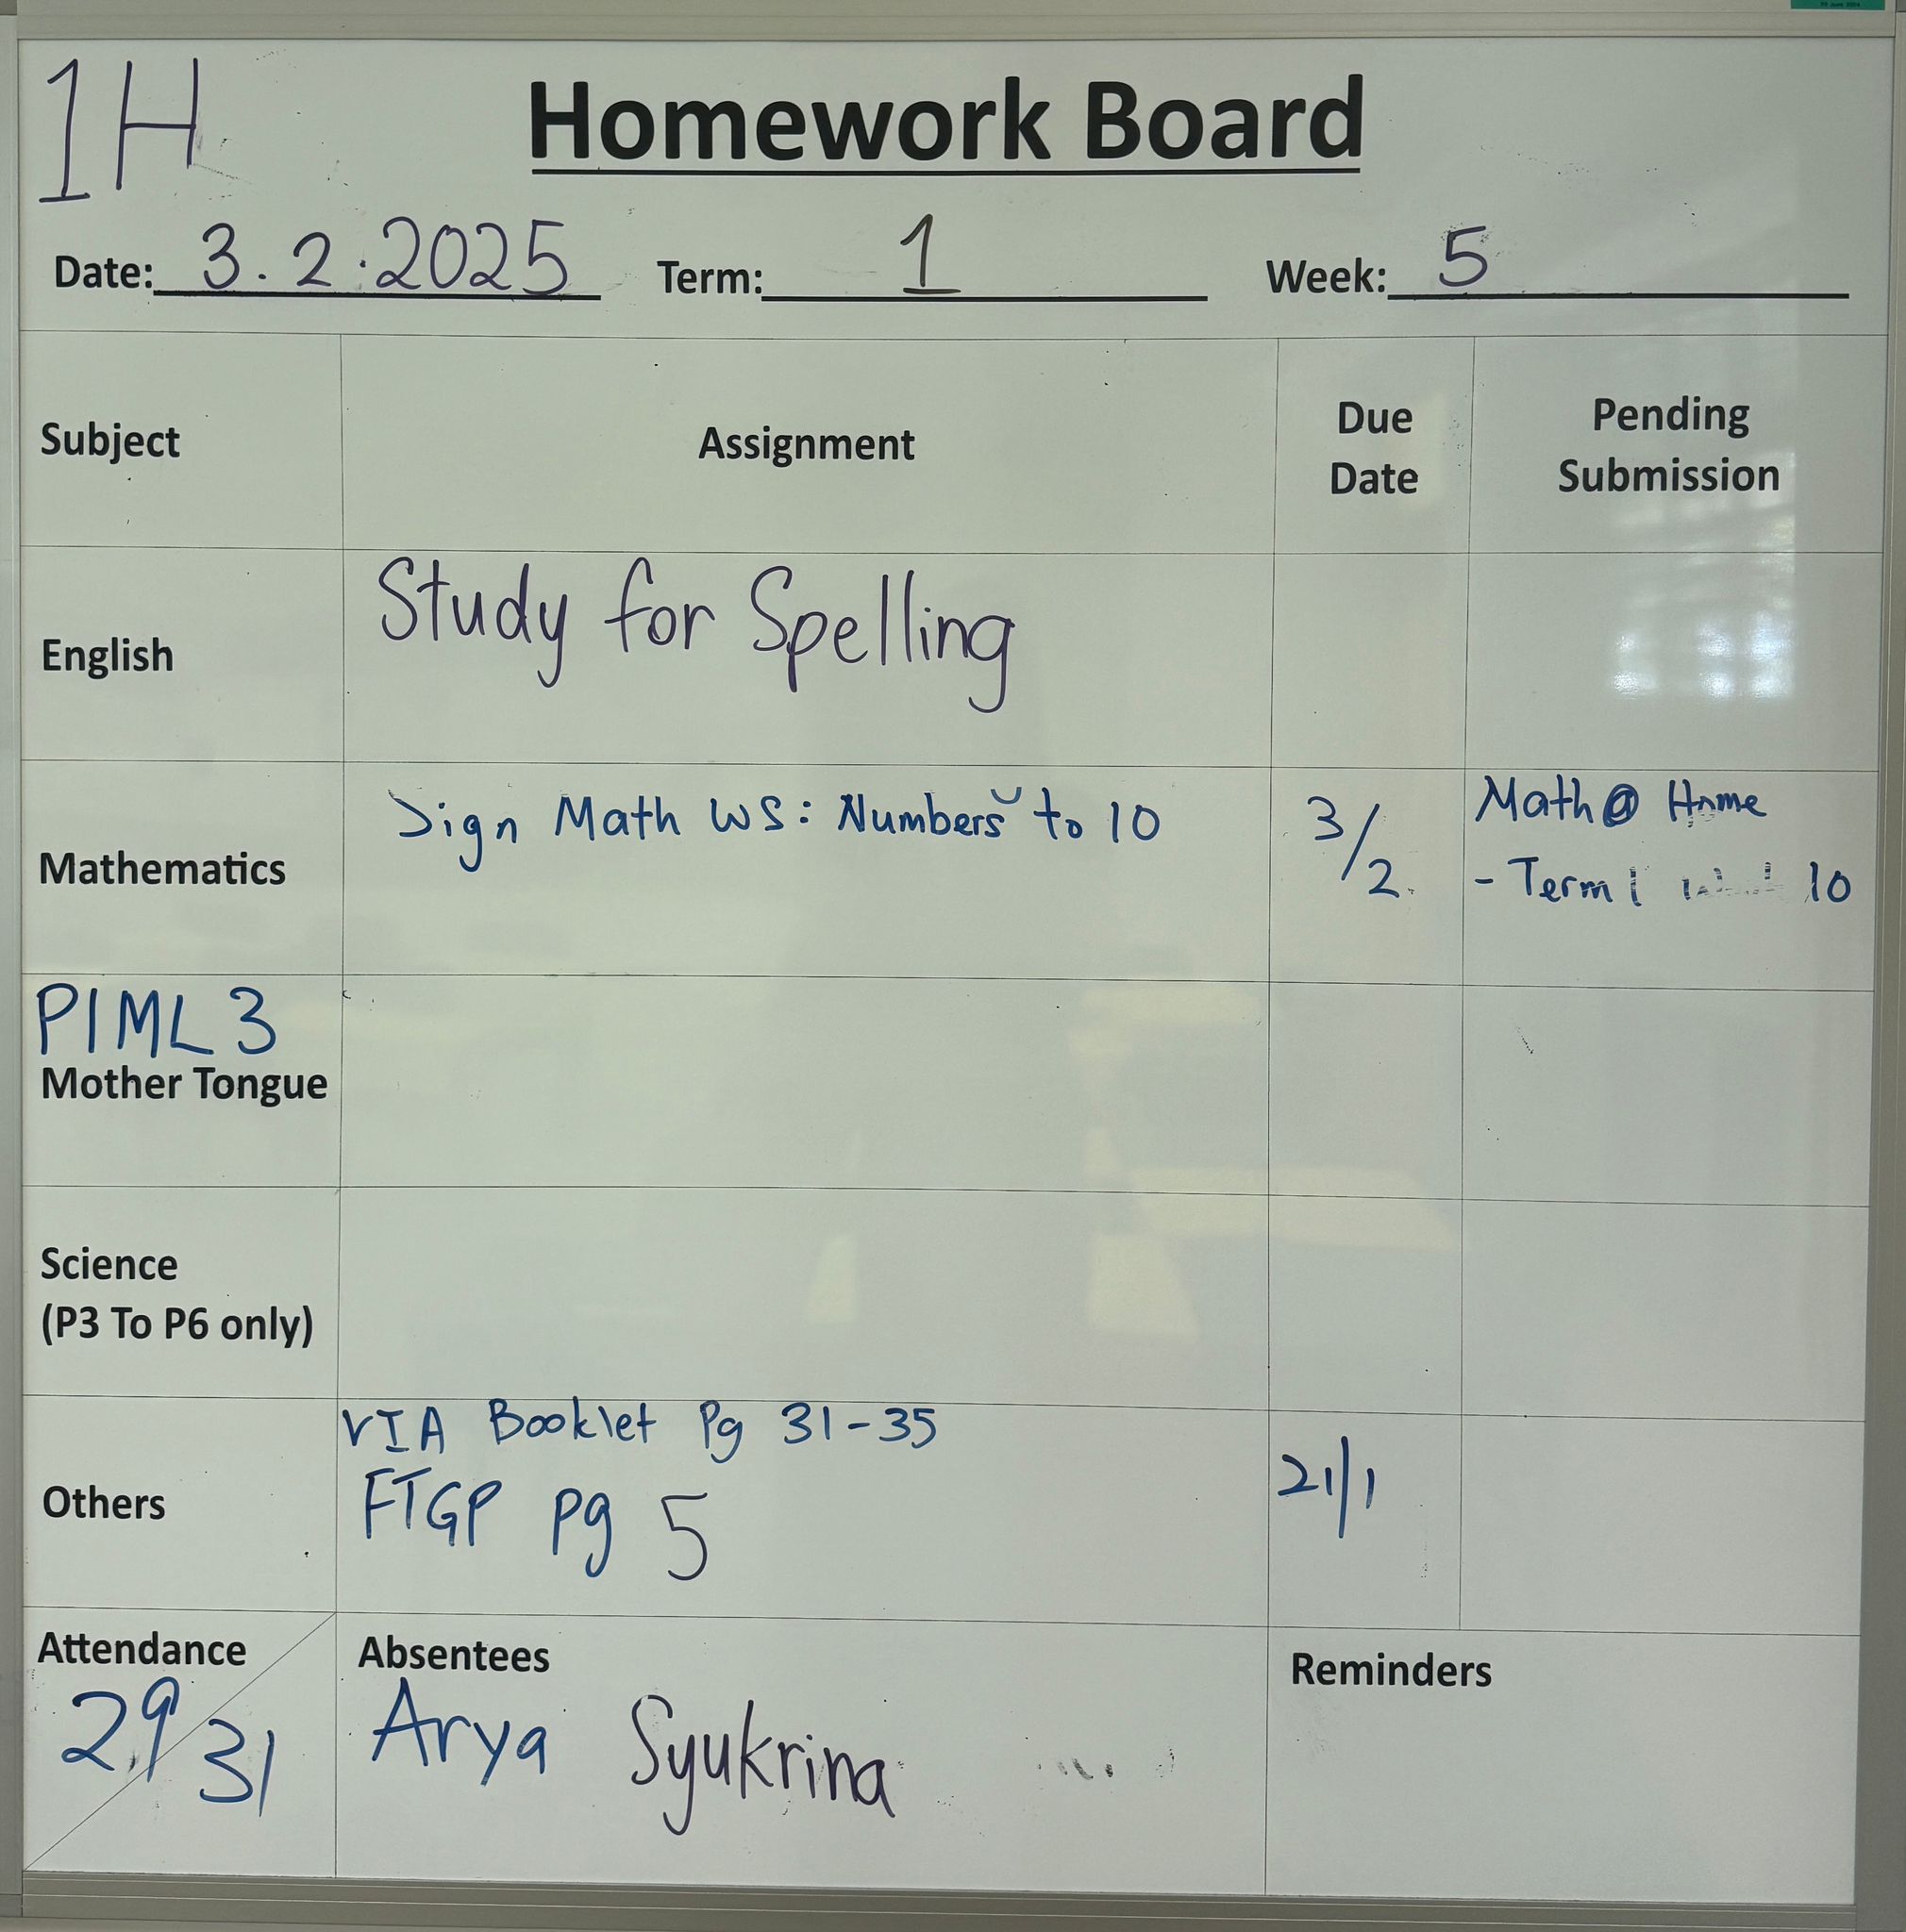 1H
Homework Board
Date: 3.2.2025 Term: 1 Week: 5
Subject Assignment Due Date Pending Submission
English Study for Spelling
Mathematics Sign Math WS: Numbers to 10 3/2 Math @ Home
- Term 1 10
PIML 3
Mother Tongue
Science
(P3 To P6 only)
VIA Booklet Pg 31-35
Others FTGP pg 5 21/1
Attendance Absentees Reminders
29/31 Arya Syukrina